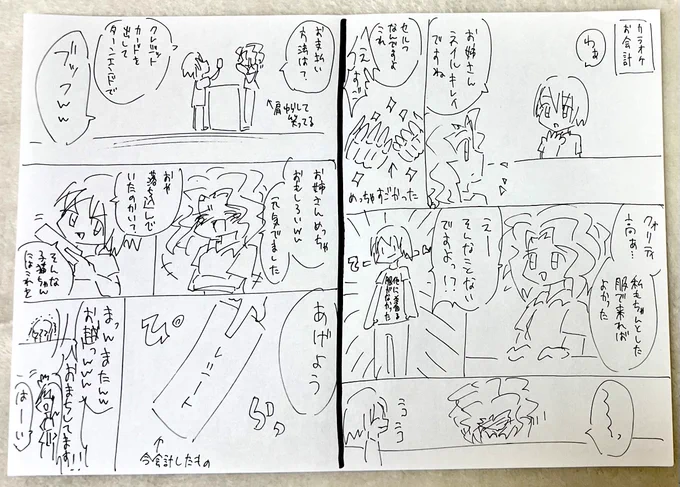 カラオケ
お会計
わぁ
お姉さん
ネイルキレイ
ですね
セルフ
なんですよ
これ
えっ
すご
めっちゃすごかった
クォリティ
高ぁ…
私もちゃんとした
服で来れば
よかった
えー
そんなことない
ですよっ!?
他に着る
服がなかった
ニコ
ニコ
お支払い
方法は?
クレジット
カードを
出して
ターンエンドで
ブッフww
肩ゆらして
笑ってる
お姉さんめっちゃ
おもしろいww
元気でました
おや
落ち込んで
いたのかい?
そんな
子猫ちゃん
にはこれを
あげよう
レシート
ぴ
今会計したもの
まったんまたんww
お越っんww
おまちしてます!!
はーい